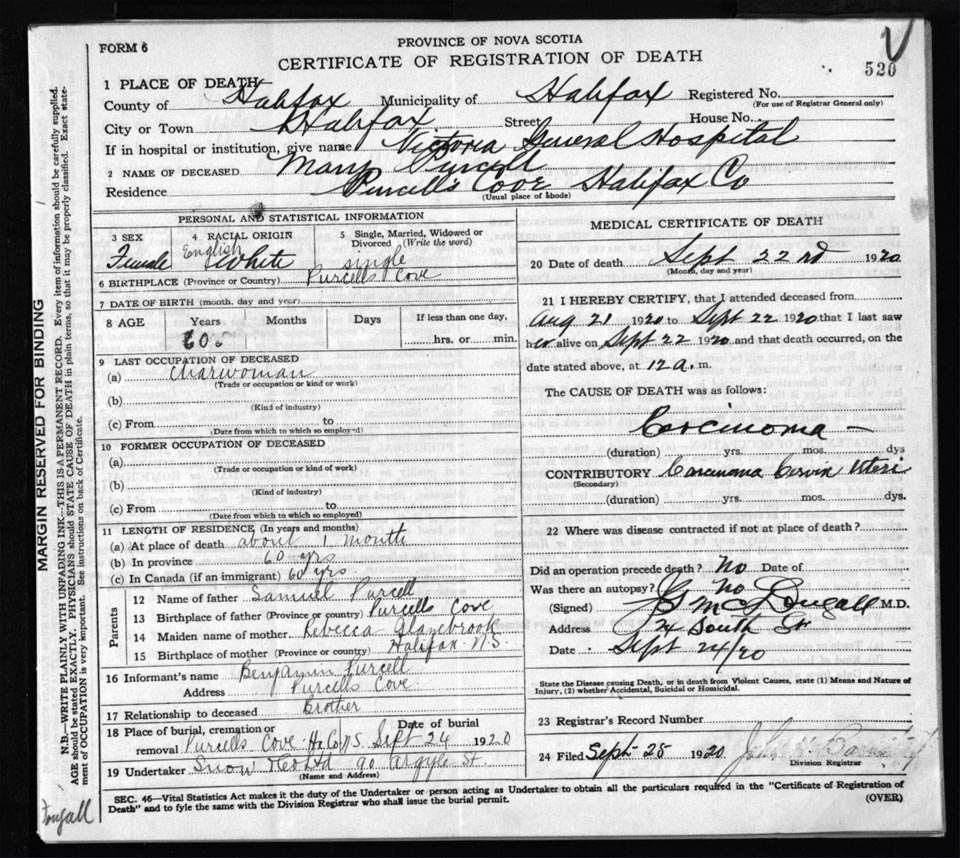 FORM 6
PROVINCE OF NOVA SCOTIA
CERTIFICATE OF REGISTRATION OF DEATH
520
1 PLACE OF DEATH
County of Halifax Municipality of Halifax Registered No.
(For use of Registrar General only)
City or Town Halifax Street House No.
If in hospital or institution, give name Victoria General Hospital
2 NAME OF DECEASED Mary Purcell
Residence Purcell's Cove Halifax Co
(Usual place of abode)
PERSONAL AND STATISTICAL INFORMATION
3 SEX
Female
4 RACIAL ORIGIN
English White
5 Single, Married, Widowed or
Divorced (Write the word)
single
6 BIRTHPLACE (Province or Country) Purcells Cove
7 DATE OF BIRTH (month, day and year)
8 AGE Years Months Days If less than one day,
60 hrs. or min.
9 LAST OCCUPATION OF DECEASED
(a) Charwoman
(Trade or occupation or kind or work)
(b)
(Kind of industry)
(c) From to
(Date from which to which so employed)
10 FORMER OCCUPATION OF DECEASED
(a)
(Trade or occupation or kind of work)
(b)
(Kind of industry)
(c) From to
(Date from which to which so employed)
11 LENGTH OF RESIDENCE (In years and months)
(a) At place of death about 1 month
(b) In province 60 yrs
(c) In Canada (if an immigrant) 60 yrs
Parents
12 Name of father Samuel Purcell
13 Birthplace of father (Province or country) Purcells Cove
14 Maiden name of mother Rebecca
15 Birthplace of mother (Province or country) Halifax N S
16 Informant's name Benjamin Purcell
Address Purcells Cove
17 Relationship to deceased Brother
18 Place of burial, cremation or Date of burial
removal Purcells Cove Hx Co N.S. Sept 24 1920
19 Undertaker Snow & Co Ltd 90 Argyle St
(Name and Address)
MEDICAL CERTIFICATE OF DEATH
20 Date of death Sept 22nd 1920
(Month, day and year)
21 I HEREBY CERTIFY, that I attended deceased from
Aug 21 1920 to Sept 22 1920 that I last saw
her alive on Sept 22 1920 and that death occurred, on the
date stated above, at 12 a. m.
The CAUSE OF DEATH was as follows:
Carcinoma
(duration) yrs. mos. dys
CONTRIBUTORY Carcinoma Cervix Uteri
(Secondary)
(duration) yrs. mos. dys.
22 Where was disease contracted if not at place of death?
Did an operation precede death? No Date of
Was there an autopsy? No
(Signed) G McDougall M.D.
Address 24 South St
Date Sept 24/20
State the Disease causing Death, or in death from Violent Causes, state (1) Means and Nature of
Injury, (2) whether Accidental, Suicidal or Homicidal.
23 Registrar's Record Number
24 Filed Sept 25 1920
Division Registrar
SEC. 46—Vital Statistics Act makes it the duty of the Undertaker or person acting as Undertaker to obtain all the particulars required in the "Certificate of Registration of
Death" and to fyle the same with the Division Registrar who shall issue the burial permit.
(OVER)
MARGIN RESERVED FOR BINDING
N.B.—WRITE PLAINLY WITH UNFADING INK—THIS IS A PERMANENT RECORD. Every item of information should be carefully supplied.
AGE should be stated EXACTLY. PHYSICIANS should STATE CAUSE OF DEATH in plain terms, so that it may be properly classified. Exact state-
ment of OCCUPATION is very important. See instructions on back of Certificate.